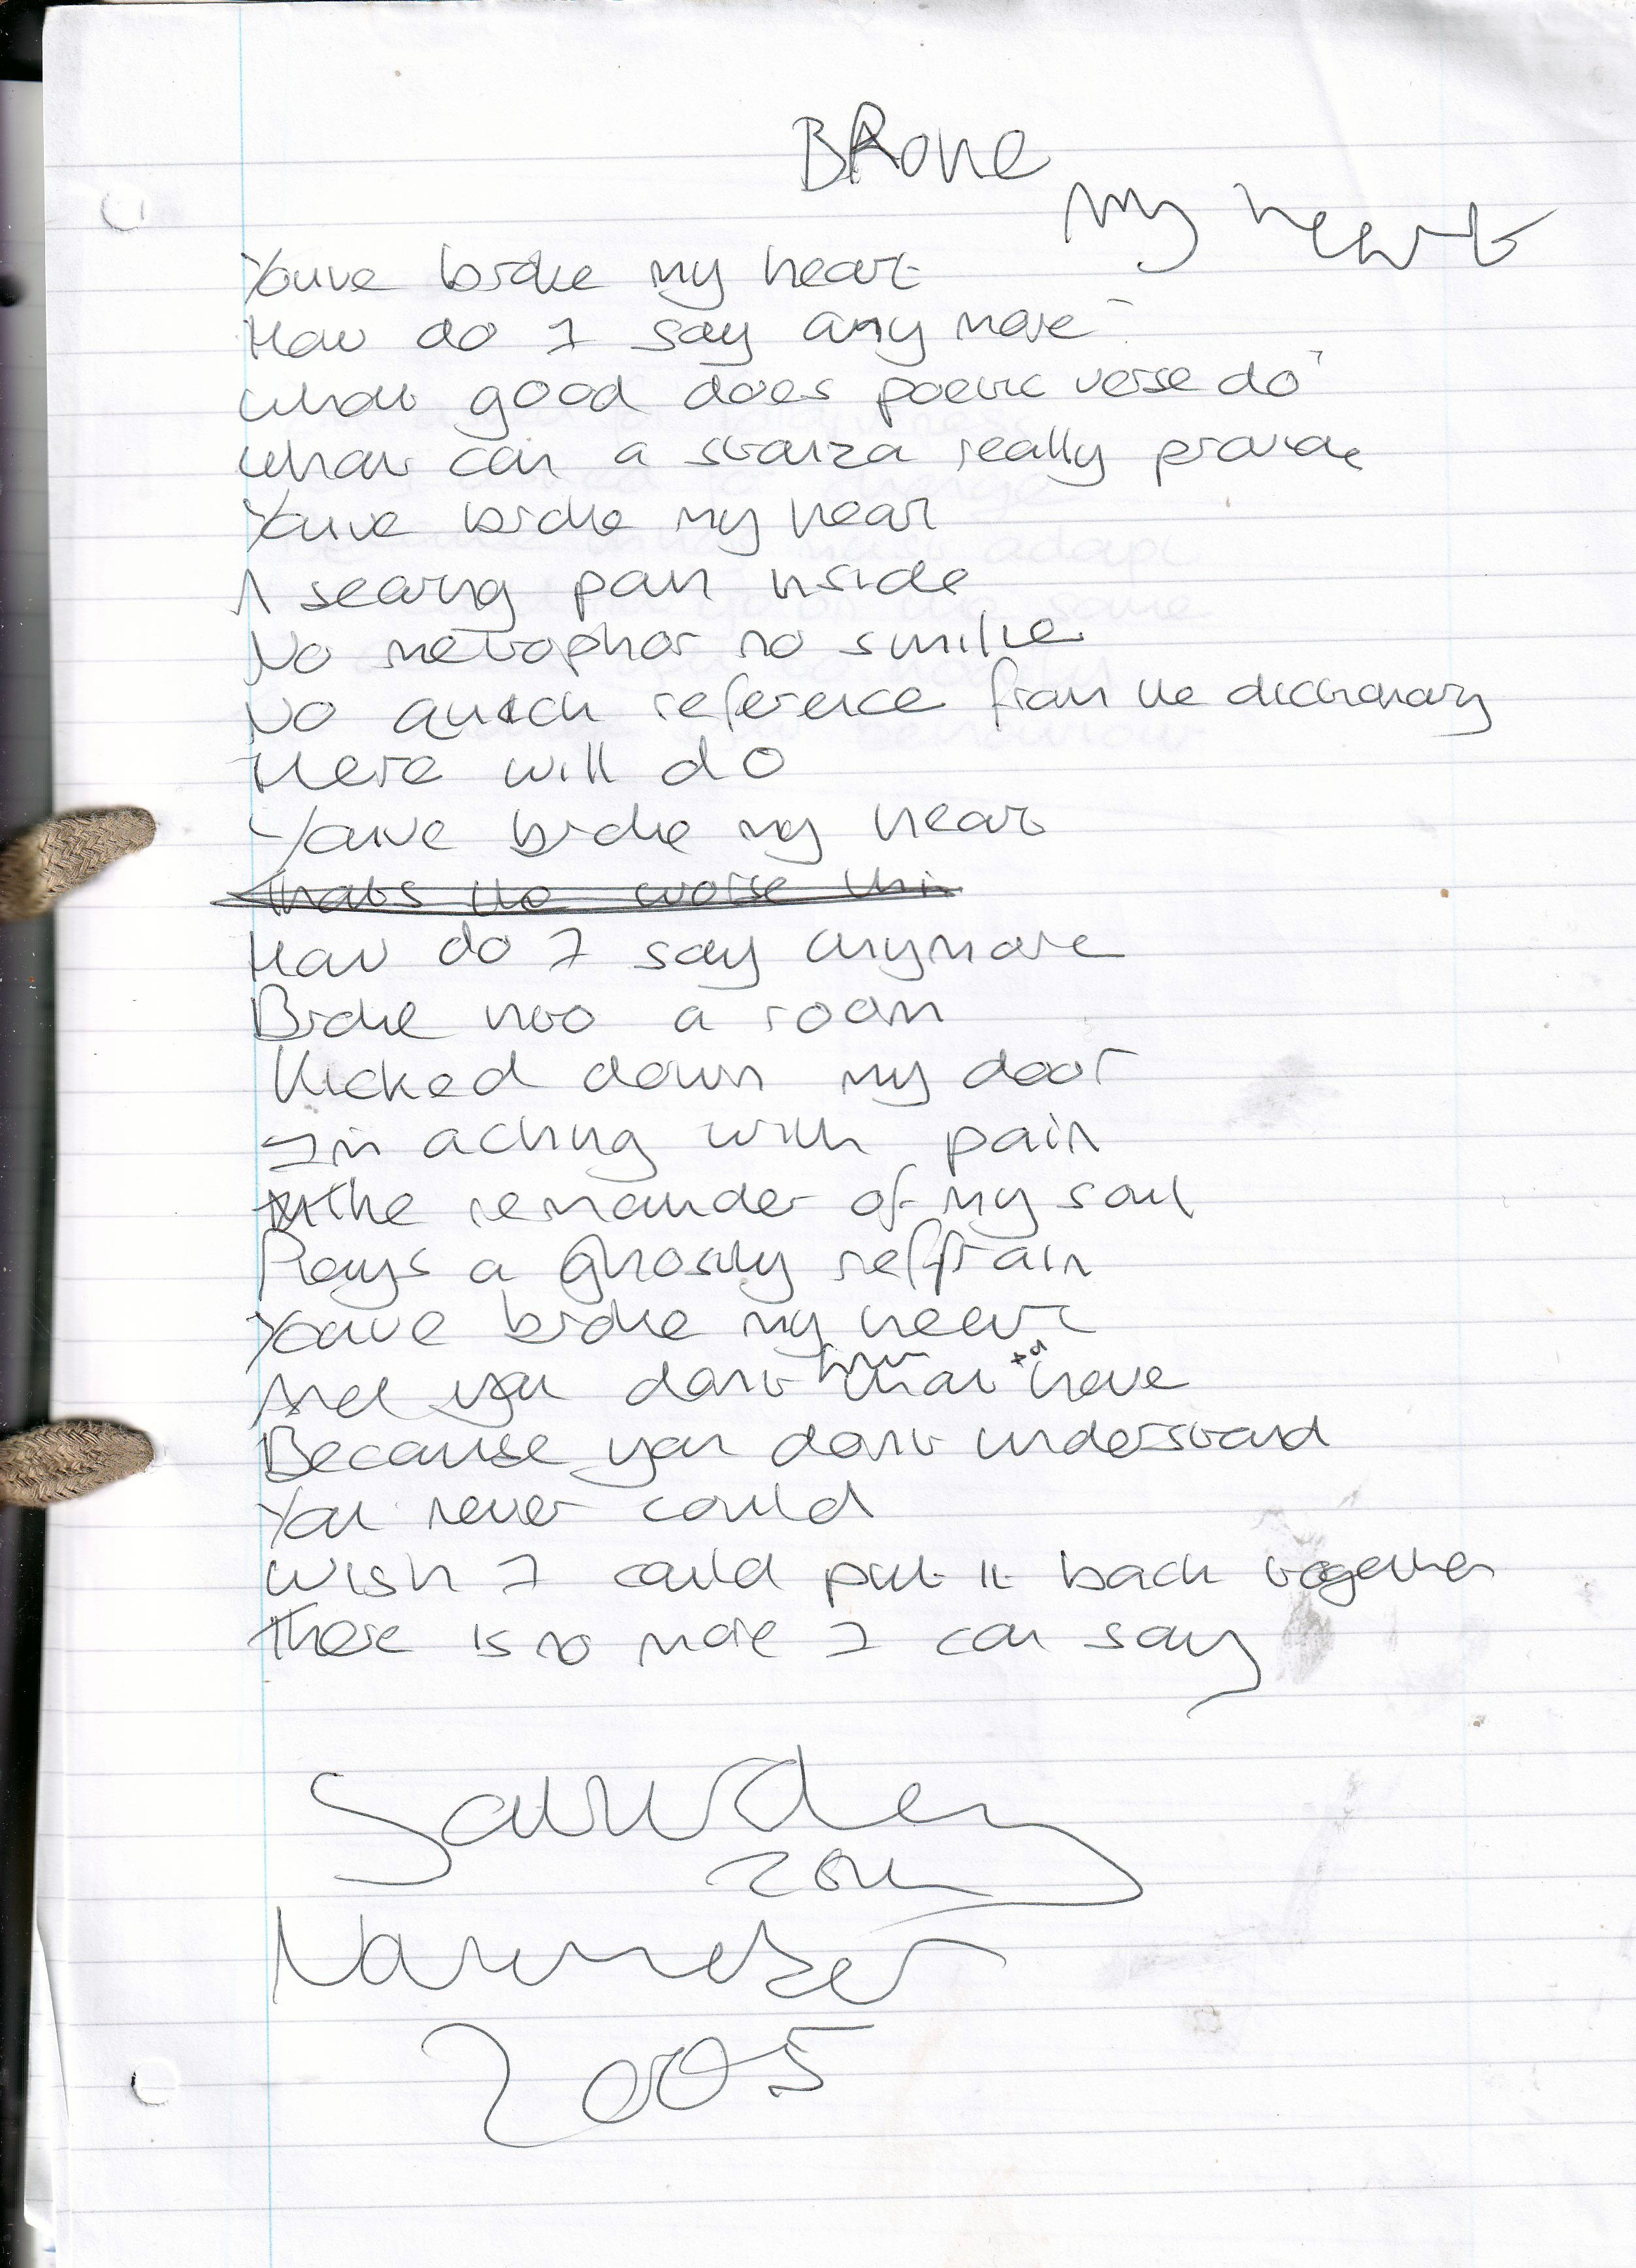 BRoke
my heart
Youve broke my heart
How do I say any more
what good does poetic verse do?
what can a stanza really provide
Youve broke my heart
A searing pain inside
No metaphor no similie
No quick reference from the dictionary
Here will do
Youve broke my heart
Thats the worse thin
How do I say anymore
Broke into a room
Kicked down my door
Im aching with pain
The remainder of my soul
Plays a ghostly reffrain
Youve broke my heart
And you dont know what to have
Because you dont understand
You never could
Wish I could put it back together
There is no more I can say
Saturday
November
2005